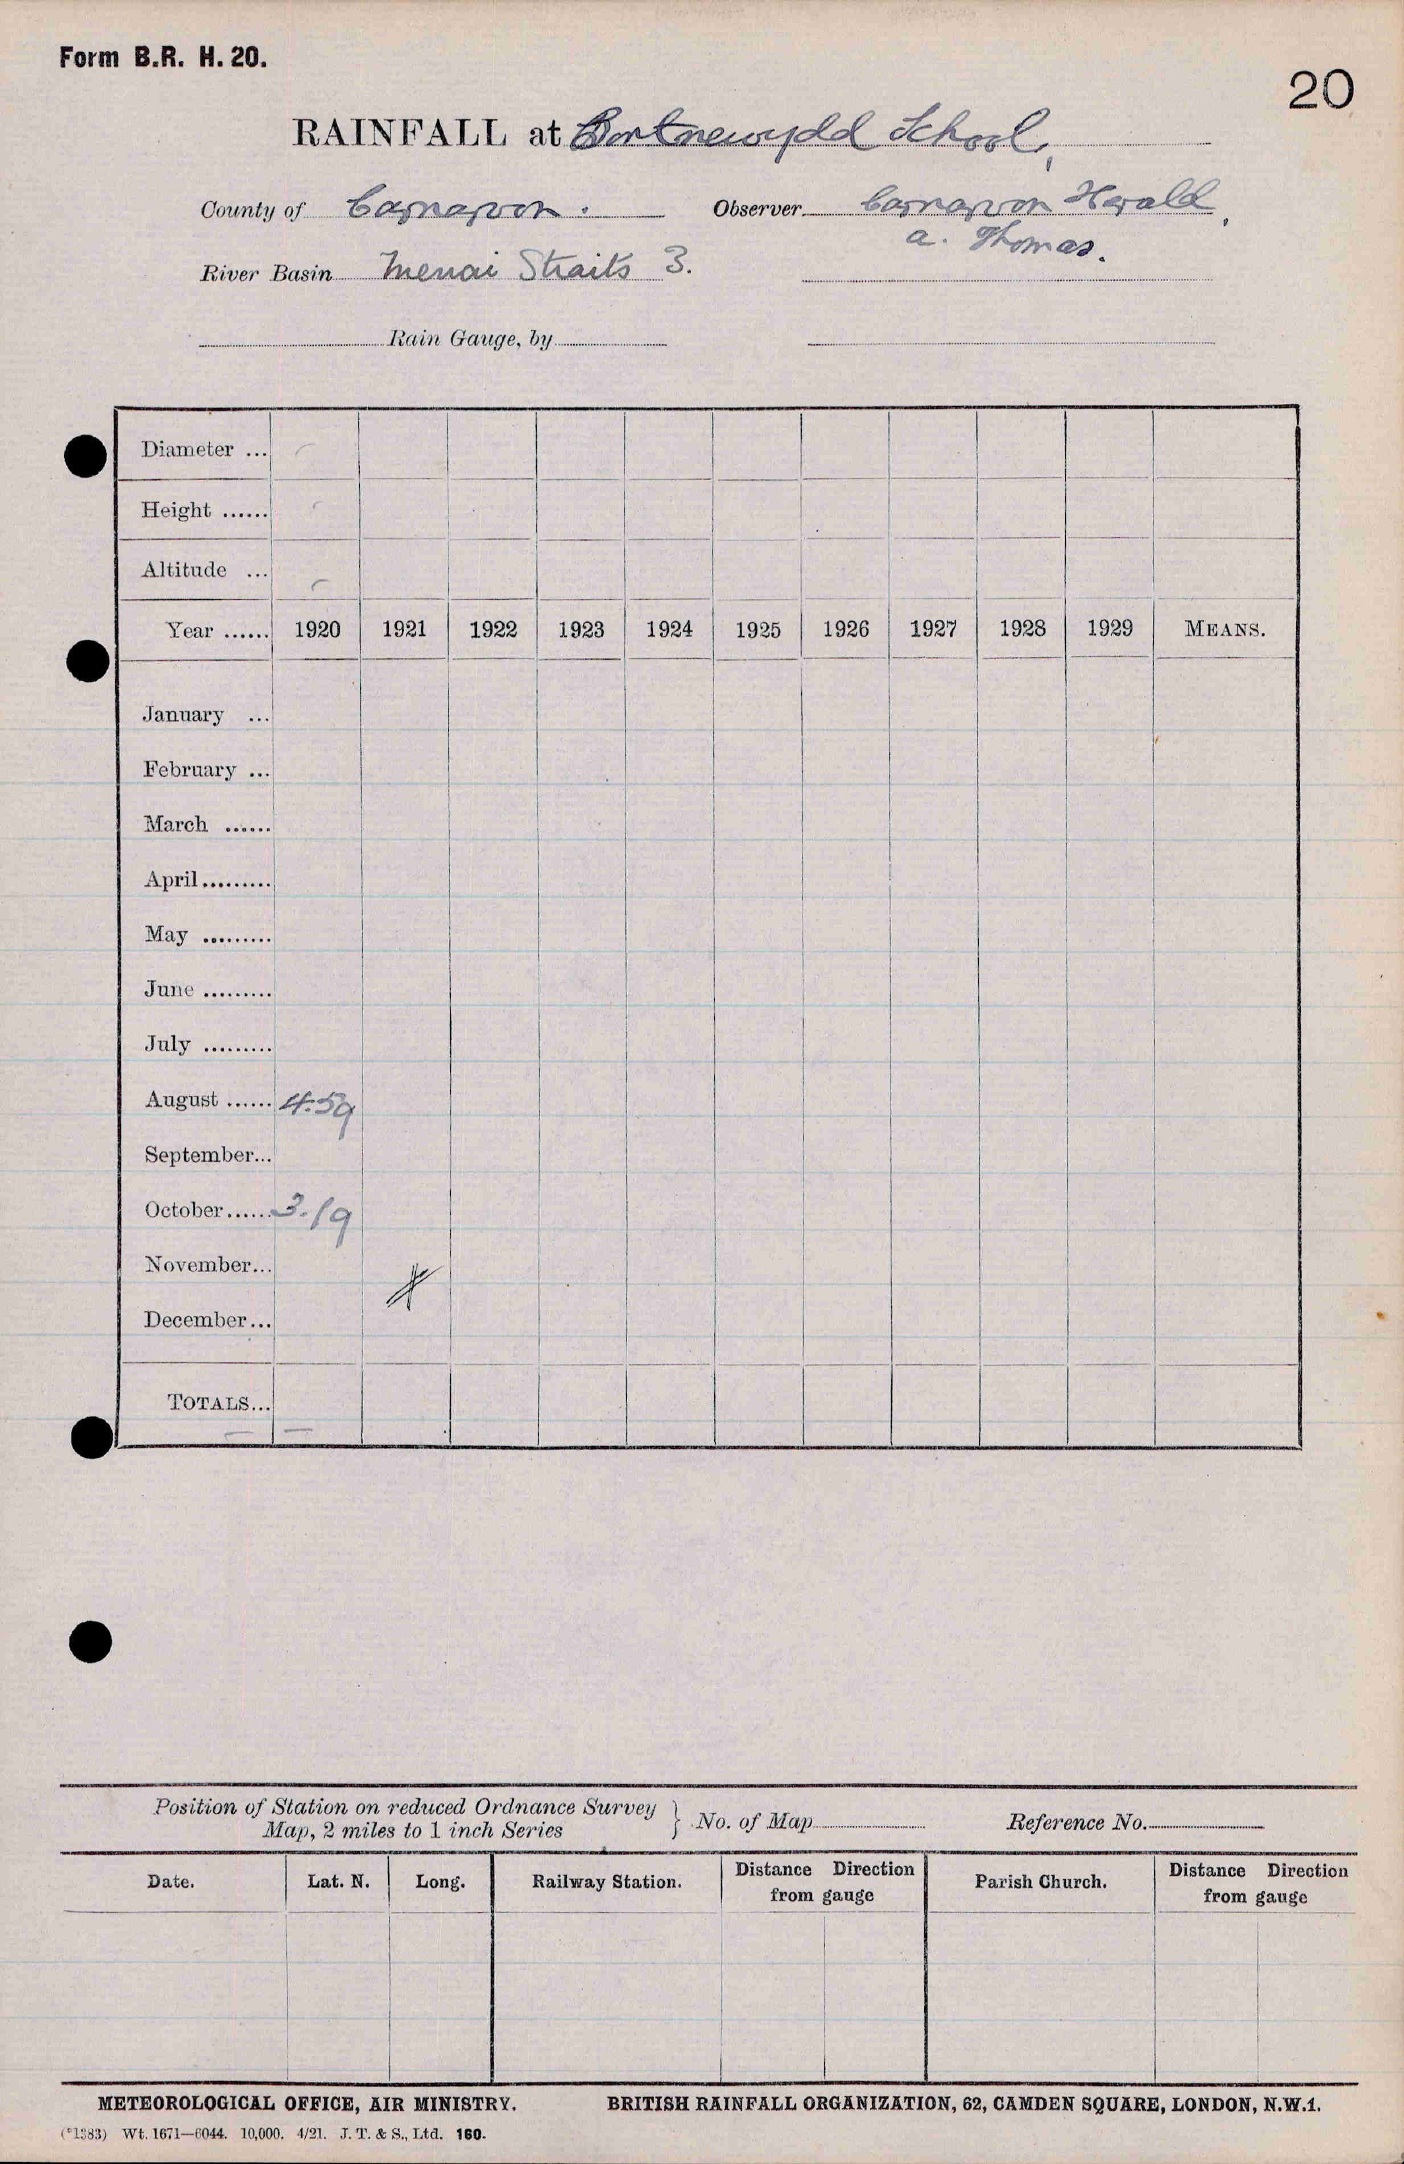 Form B.R. H. 20.
20
RAINFALL at Bontnewydd School,
County of Carnarvon. Observer Carnarvon Herald,
A. Thomas.
River Basin Menai Straits 3.
Rain Gauge, by
Diameter ...
Height ......
Altitude ...
Year ...... 1920 1921 1922 1923 1924 1925 1926 1927 1928 1929 MEANS.
January ...
February ...
March ......
April .........
May .........
June .........
July .........
August ...... 4.59
September...
October...... 3.19
November...
December...
TOTALS...
Position of Station on reduced Ordnance Survey
Map, 2 miles to 1 inch Series } No. of Map Reference No.
Date. Lat. N. Long. Railway Station. Distance Direction from gauge Parish Church. Distance Direction from gauge
METEOROLOGICAL OFFICE, AIR MINISTRY. BRITISH RAINFALL ORGANIZATION, 62, CAMDEN SQUARE, LONDON, N.W.1.
(*1383) Wt. 1671—6044. 10,000. 4/21. J. T. & S., Ltd. 160.